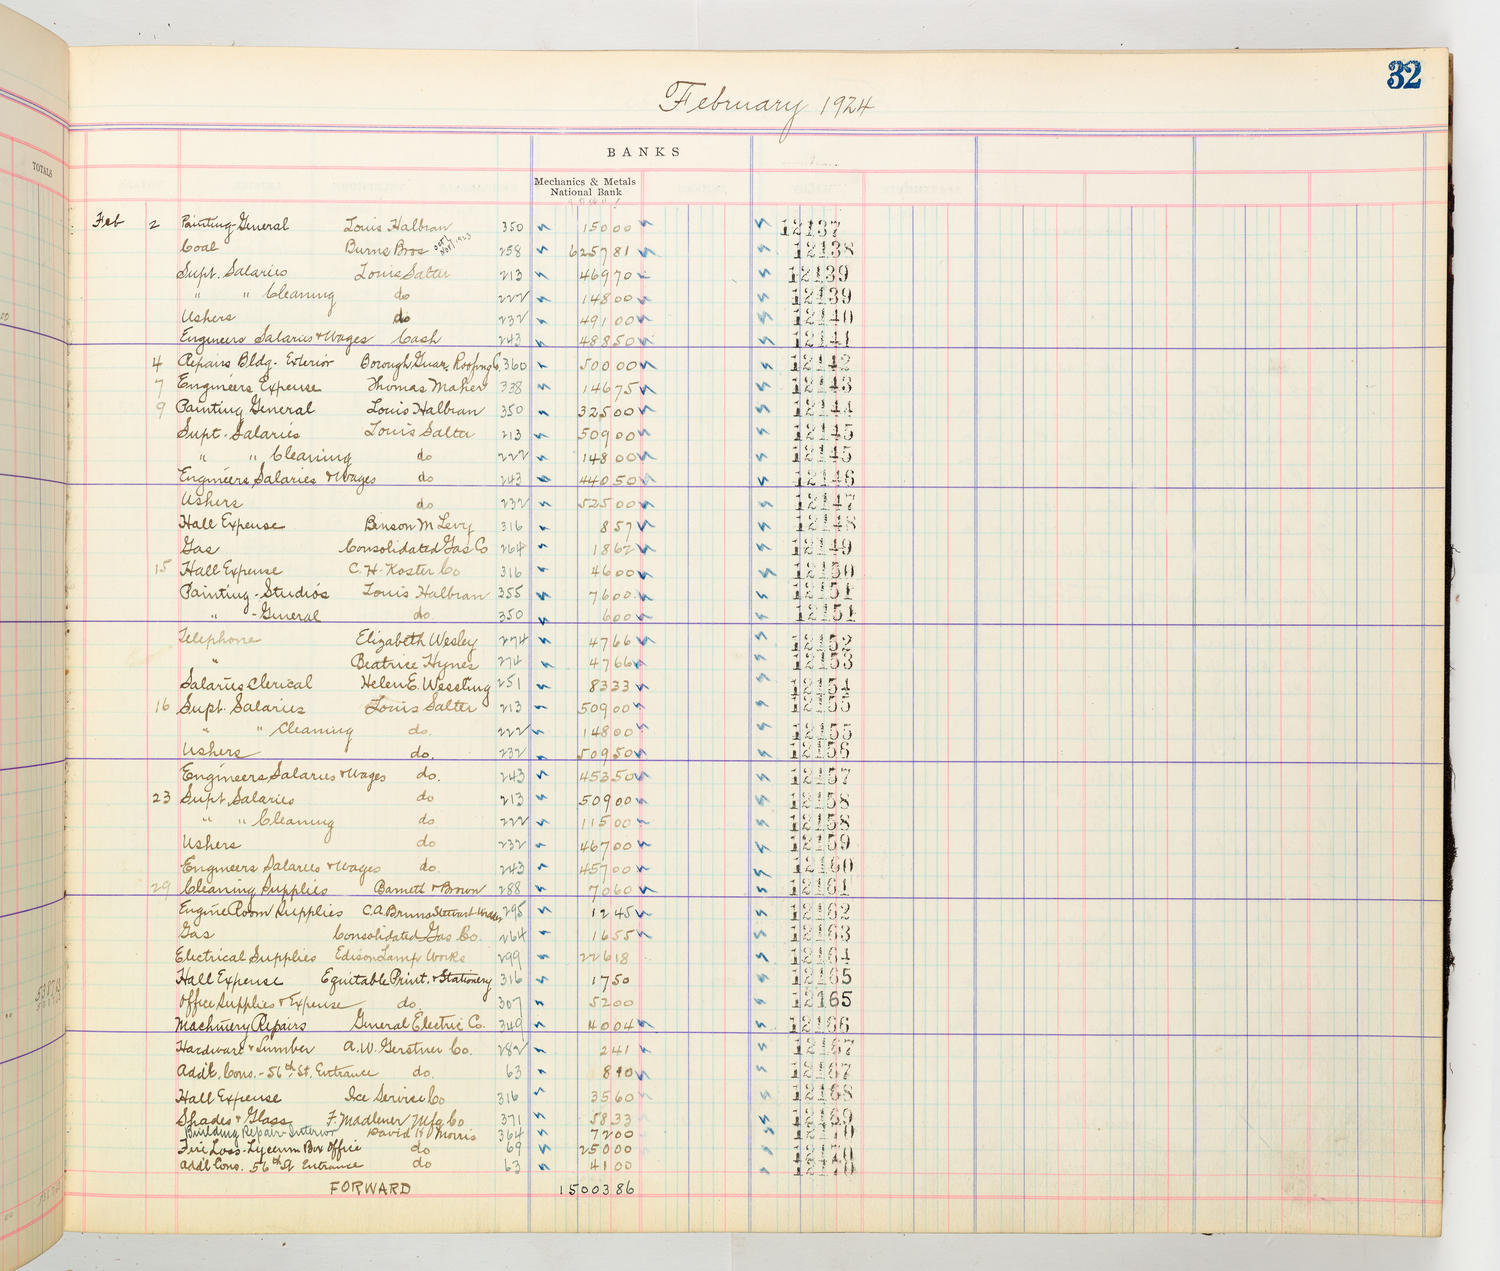 32
February 1924
TOTALS
BANKS
Mechanics & Metals
National Bank
Feb 2 Painting-General Louis Halbran 350 15000 12137
Coal Burns Bros Nov/1923 258 625781 12138
Supt. Salaries Louis Salter 213 46970 12139
" " Cleaning do 222 14800 12139
Ushers do 232 49100 12140
Engineers Salaries & Wages Cash 243 48850 12141
4 Repairs Bldg. Exterior Borough Guar. Roofing C. 360 50000 12142
7 Engineers Expense Thomas Maher 338 14675 12143
9 Painting General Louis Halbran 350 32500 12144
Supt. Salaries Louis Salter 213 50900 12145
" " Cleaning do 222 14800 12145
Engineers Salaries & Wages do 243 44050 12146
Ushers do 232 52500 12147
Hall Expense Benson M Levy 316 857 12148
Gas Consolidated Gas Co 264 1862 12149
15 Hall Expense C. H. Koster Co 316 4600 12150
Painting-Studios Louis Halbran 355 7600 12151
" -General do. 350 600 12151
Telephone Elizabeth Wesley 274 4766 12152
" Beatrice Hynes 274 4766 12153
Salaries Clerical Helen E. Wessting 251 8333 12154
16 Supt. Salaries Louis Salter 213 50900 12155
" " Cleaning do. 222 14800 12155
Ushers do. 232 50950 12156
Engineers Salaries & Wages do. 243 45350 12157
23 Supt. Salaries do 213 50900 12158
" " Cleaning do 222 11500 12158
Ushers do 232 46700 12159
Engineers Salaries & Wages do. 243 45700 12160
29 Cleaning Supplies Barnett & Brown 288 7060 12161
Engine Room Supplies C.A. Bruns 295 1245 12162
Gas Consolidated Gas Co. 264 1655 12163
Electrical Supplies Edison Lamp Works 299 22618 12164
Hall Expense Equitable Print. & Stationery 316 1750 12165
Office Supplies & Expense do. 307 5200 12165
Machinery Repairs General Electric Co. 349 4004 12166
Hardware & Lumber A.W. Gerstner Co. 282 241 12167
Addt. Cons. - 56th St. Entrance do. 63 810 12167
Hall Expense Ice Service Co 316 3560 12168
Shades & Glass F. Madlener Mfg Co 371 5833 12169
Building Repair-Interior David H. Morris 364 7200 12170
Fire Loss-Lyceum Box Office do 69 25000 12170
Addl Cons. 56th St Entrance do 63 4100 12170
FORWARD 1500386